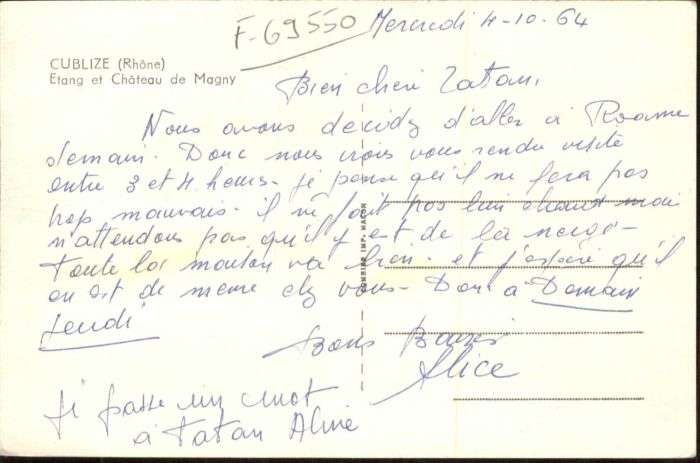 F-69550
Mercredi 4-10-64
CUBLIZE (Rhône)
Etang et Château de Magny
Bien chère Tatan,
Nous avons décidez d'aller à Roanne
demain. Donc nous irons vous rendre visite
entre 3 et 4 heures. je pense qu'il ne fera pas
trop mauvais. il ne fait pas bien chaud mais
n'attendons pas qu'il y est de la neige-
Toute la maison va bien. et j'espère qu'il
en est de même chez vous. Donc à Demain
Jeudi
Bons Baisers
Alice
je passe un mot
à Tatan Aline
COMBIER IMP. MACON